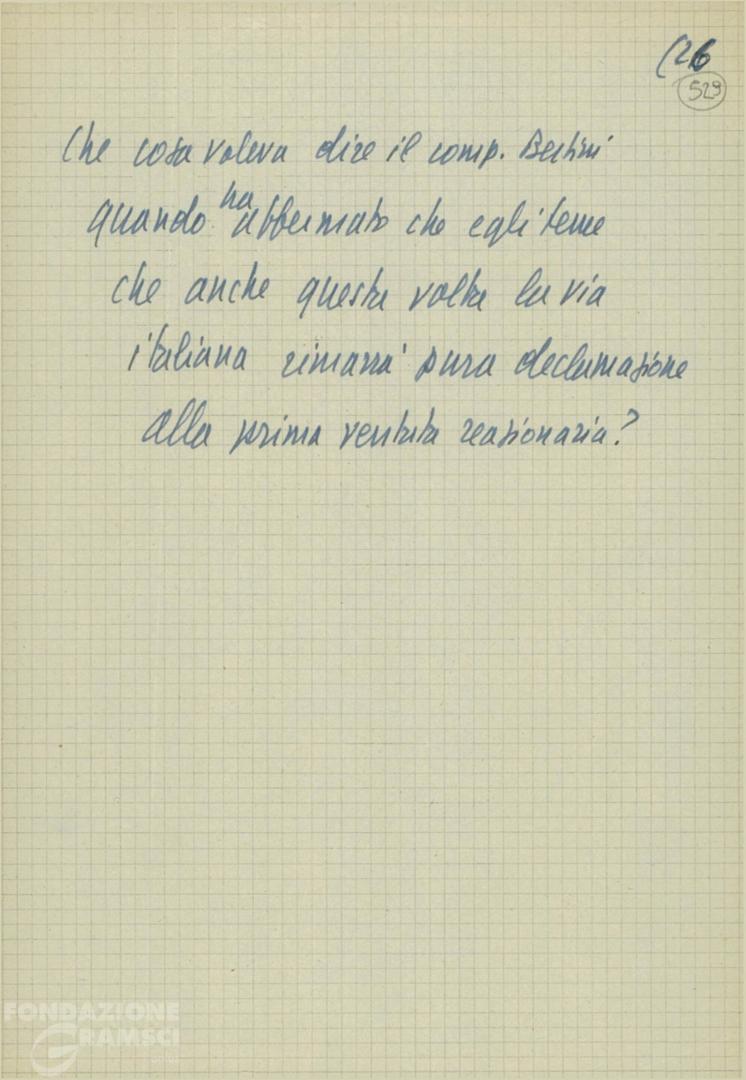 (26
529
Che cosa voleva dire il comp. Bertini
quando ha affermato che egli teme
che anche questa volta la via
italiana rimarrà pura declamazione
alla prima ventata reazionaria?
FONDAZIONE
GRAMSCI